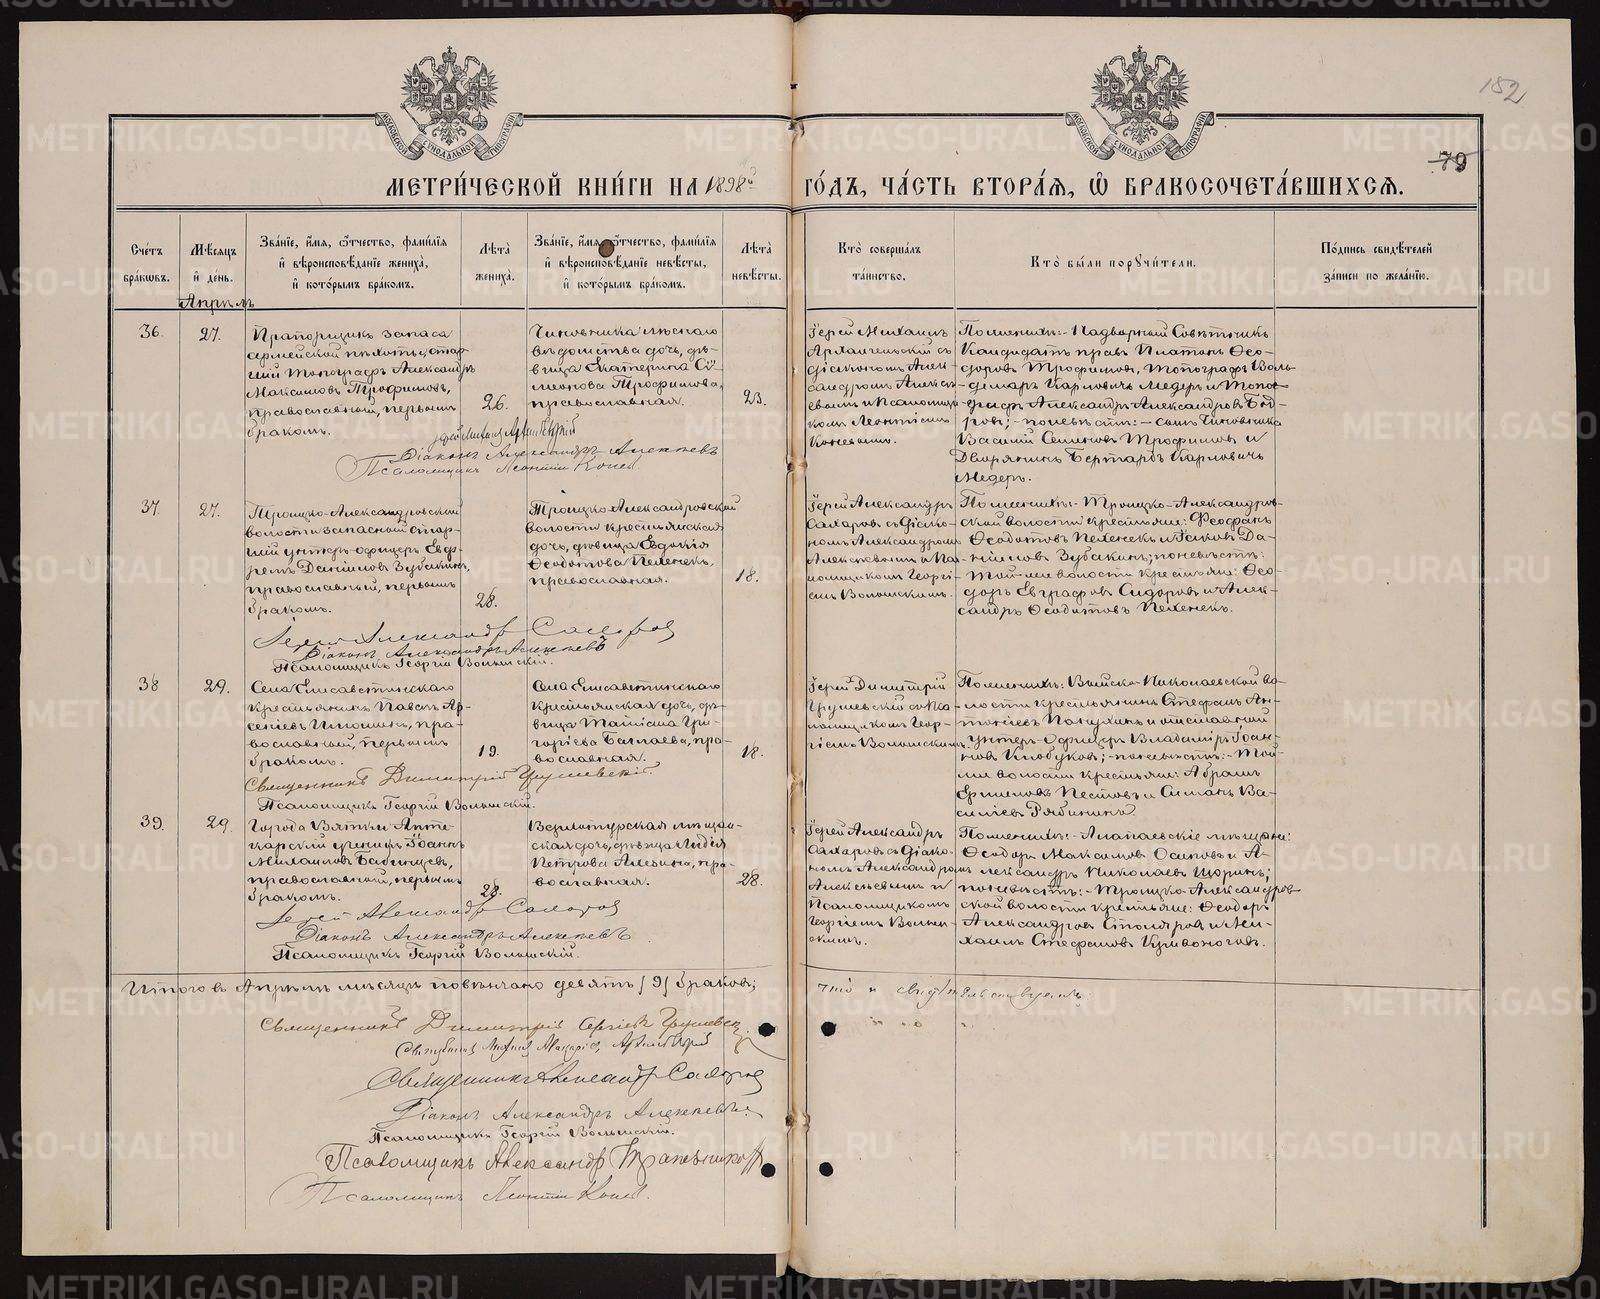 182
79
МЕТРИ́ЧЕСКОЙ КНИ́ГИ НА 1898й ГО́ДЪ, ЧА́СТЬ ВТОРА́Я, Ѿ БРАКОСОЧЕТА́ВШИХСЯ.
Сче́тъ бра́кωвъ.
Мѣ́сяцъ и҆ де́нь.
Зва́нїе, и҆́мя, ѻ҆́тчество, фами́лїя и҆ вѣроисповѣ́данїе жениха̀, и҆ кото́рымъ бра́комъ.
Лѣ́та̀ жениха̀.
Зва́нїе, и҆́мя, ѻ҆́тчество, фами́лїя и҆ вѣроисповѣ́данїе невѣ́сты, и҆ кото́рымъ бра́комъ.
Лѣ́та̀ невѣ́сты.
Кто̀ соверша́лъ та́инство.
Кто̀ бы́ли порꙋчи́тели.
По́дпись свидѣ́телей за́писи по жела́нїю.
Апрѣль
36.
27.
Прапорщикъ запаса
армейской пѣхоты, стар-
шій топографъ Александръ
Максимовъ Трофимовъ,
православный, первымъ
бракомъ.
26.
Чиновника лѣснаго
вѣдомства дочь, дѣ-
вица Екатерина Си-
меонова Трофимова,
православная.
23.
Іерей Михаилъ
Архангельскій съ
діакономъ Алек-
сандромъ Алексѣ-
евымъ и Псаломщи-
комъ Леонтіемъ
Коневымъ.
По женихѣ:- Надворный Совѣтникъ
Кандидатъ правъ Платонъ Ѳео-
доровъ Трофимовъ, топографъ Воль-
демаръ Карловичъ Медеръ и Топо-
графъ Александръ Александровъ Бод-
ровъ; - по невѣстѣ: - сынъ чиновника
Василій Семеновъ Трофимовъ и
Дворянинъ Бертардъ Карловичъ
Медеръ.
Іерей Михаилъ Архангельскій
Діаконъ Александръ Алексѣевъ
Псаломщикъ Леонтій Коневъ
37.
27.
Троицко-Александровской
волости запасный стар-
шій унтеръ-офицеръ Евф-
ремъ Даніиловъ Зубакинъ,
православный, первымъ
бракомъ.
28.
Троицко-Александровской
волости крестьянская
дочь, дѣвица Евдокія
Ѳеодотова Пеленекъ,
православная.
18.
Іерей Александръ
Сахаровъ съ діако-
номъ Александромъ
Алексѣевымъ и Пса-
ломщикомъ Георгі-
емъ Волынскимъ.
По женихѣ:- Троицко-Александров-
ской волости крестьяне: Ѳеофанъ
Ѳеодотовъ Пеленекъ и Іаковъ Да-
ніиловъ Зубакинъ; по невѣстѣ:
той-же волости крестьяне: Ѳео-
доръ Евграфовъ Сидоровъ и Алек-
сандръ Ѳеодотовъ Пеленекъ.
Іерей Александръ Сахаровъ
Діаконъ Александръ Алексѣевъ
Псаломщикъ Георгій Волынскій.
38
29.
Села Елисаветинскаго
крестьянинъ Павелъ Ар-
сеніевъ Илюшинъ, пра-
вославный, первымъ
бракомъ.
19.
Села Елисаветинскаго
крестьянская дочь, дѣ-
вица Таисія Гри-
горіева Баглаева, пра-
вославная.
18.
Іерей Димитрій
Грушевскій съ Пса-
ломщикомъ Геор-
гіемъ Волынскимъ.
По женихѣ: Выйско-Николаевской во-
лости крестьянинъ Стефанъ Ан-
тоніевъ Патухинъ и отставной
унтеръ-Офицеръ Владиміръ Іоан-
новъ Клобуковъ; - по невѣстѣ: - Той-
же волости крестьяне: Абрамъ
Ермиловъ Пестовъ и Симанъ Ва-
силіевъ Рябининъ.
Священникъ Димитрій Грушевскій.
Псаломщикъ Георгій Волынскій.
39.
29.
Города Вятки Апте-
карскій ученикъ Іоаннъ
Михаиловъ Бабинцевъ,
православный, первымъ
бракомъ.
28.
Верхотурская мѣщан-
ская дочь, дѣвица Лидія
Петрова Алевина, пра-
вославная.
28.
Іерей Александръ
Сахаровъ съ діако-
номъ Александромъ
Алексѣевымъ и
Псаломщикомъ
Георгіемъ Волын-
скимъ.
По женихѣ:- Алапаевскіе мѣщане:
Ѳеодоръ Максимовъ Осиповъ и А-
лександръ Николаевъ Щоринъ;
по невѣстѣ:- Троицко-Александров-
ской волости крестьяне: Ѳеодоръ
Александровъ Столяровъ и Ми-
хаилъ Стефановъ Кривоноговъ.
Іерей Александръ Сахаровъ
Діаконъ Александръ Алексѣевъ
Псаломщикъ Георгій Волынскій.
Итого въ Апрѣлѣ мѣсяцѣ повѣнчано девять (9) браковъ; что и свидѣтельствуемъ:
Священникъ Димитрій Сергіевъ Грушевскій
Священникъ Михаилъ Макаріевъ Архангельскій
Священникъ Александръ Сахаровъ
Діаконъ Александръ Алексѣевъ.
Псаломщикъ Георгій Волынскій.
Псаломщикъ Александръ
Псаломщикъ Леонтій Коневъ.
METRIKI.GASO-URAL.RU